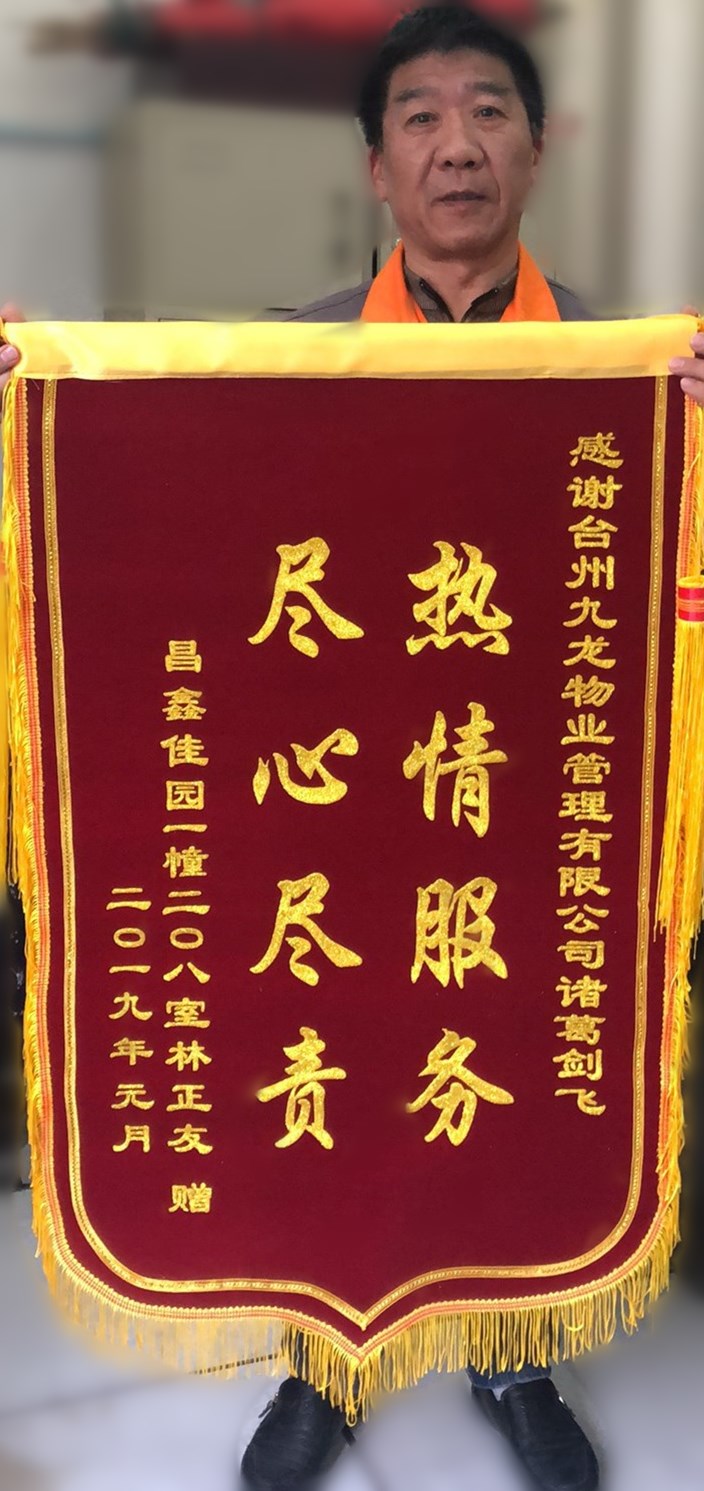 感谢台州九龙物业管理有限公司诸葛剑飞
热情服务
尽心尽责
昌鑫佳园一幢二〇八室林正友 赠
二〇一九年元月